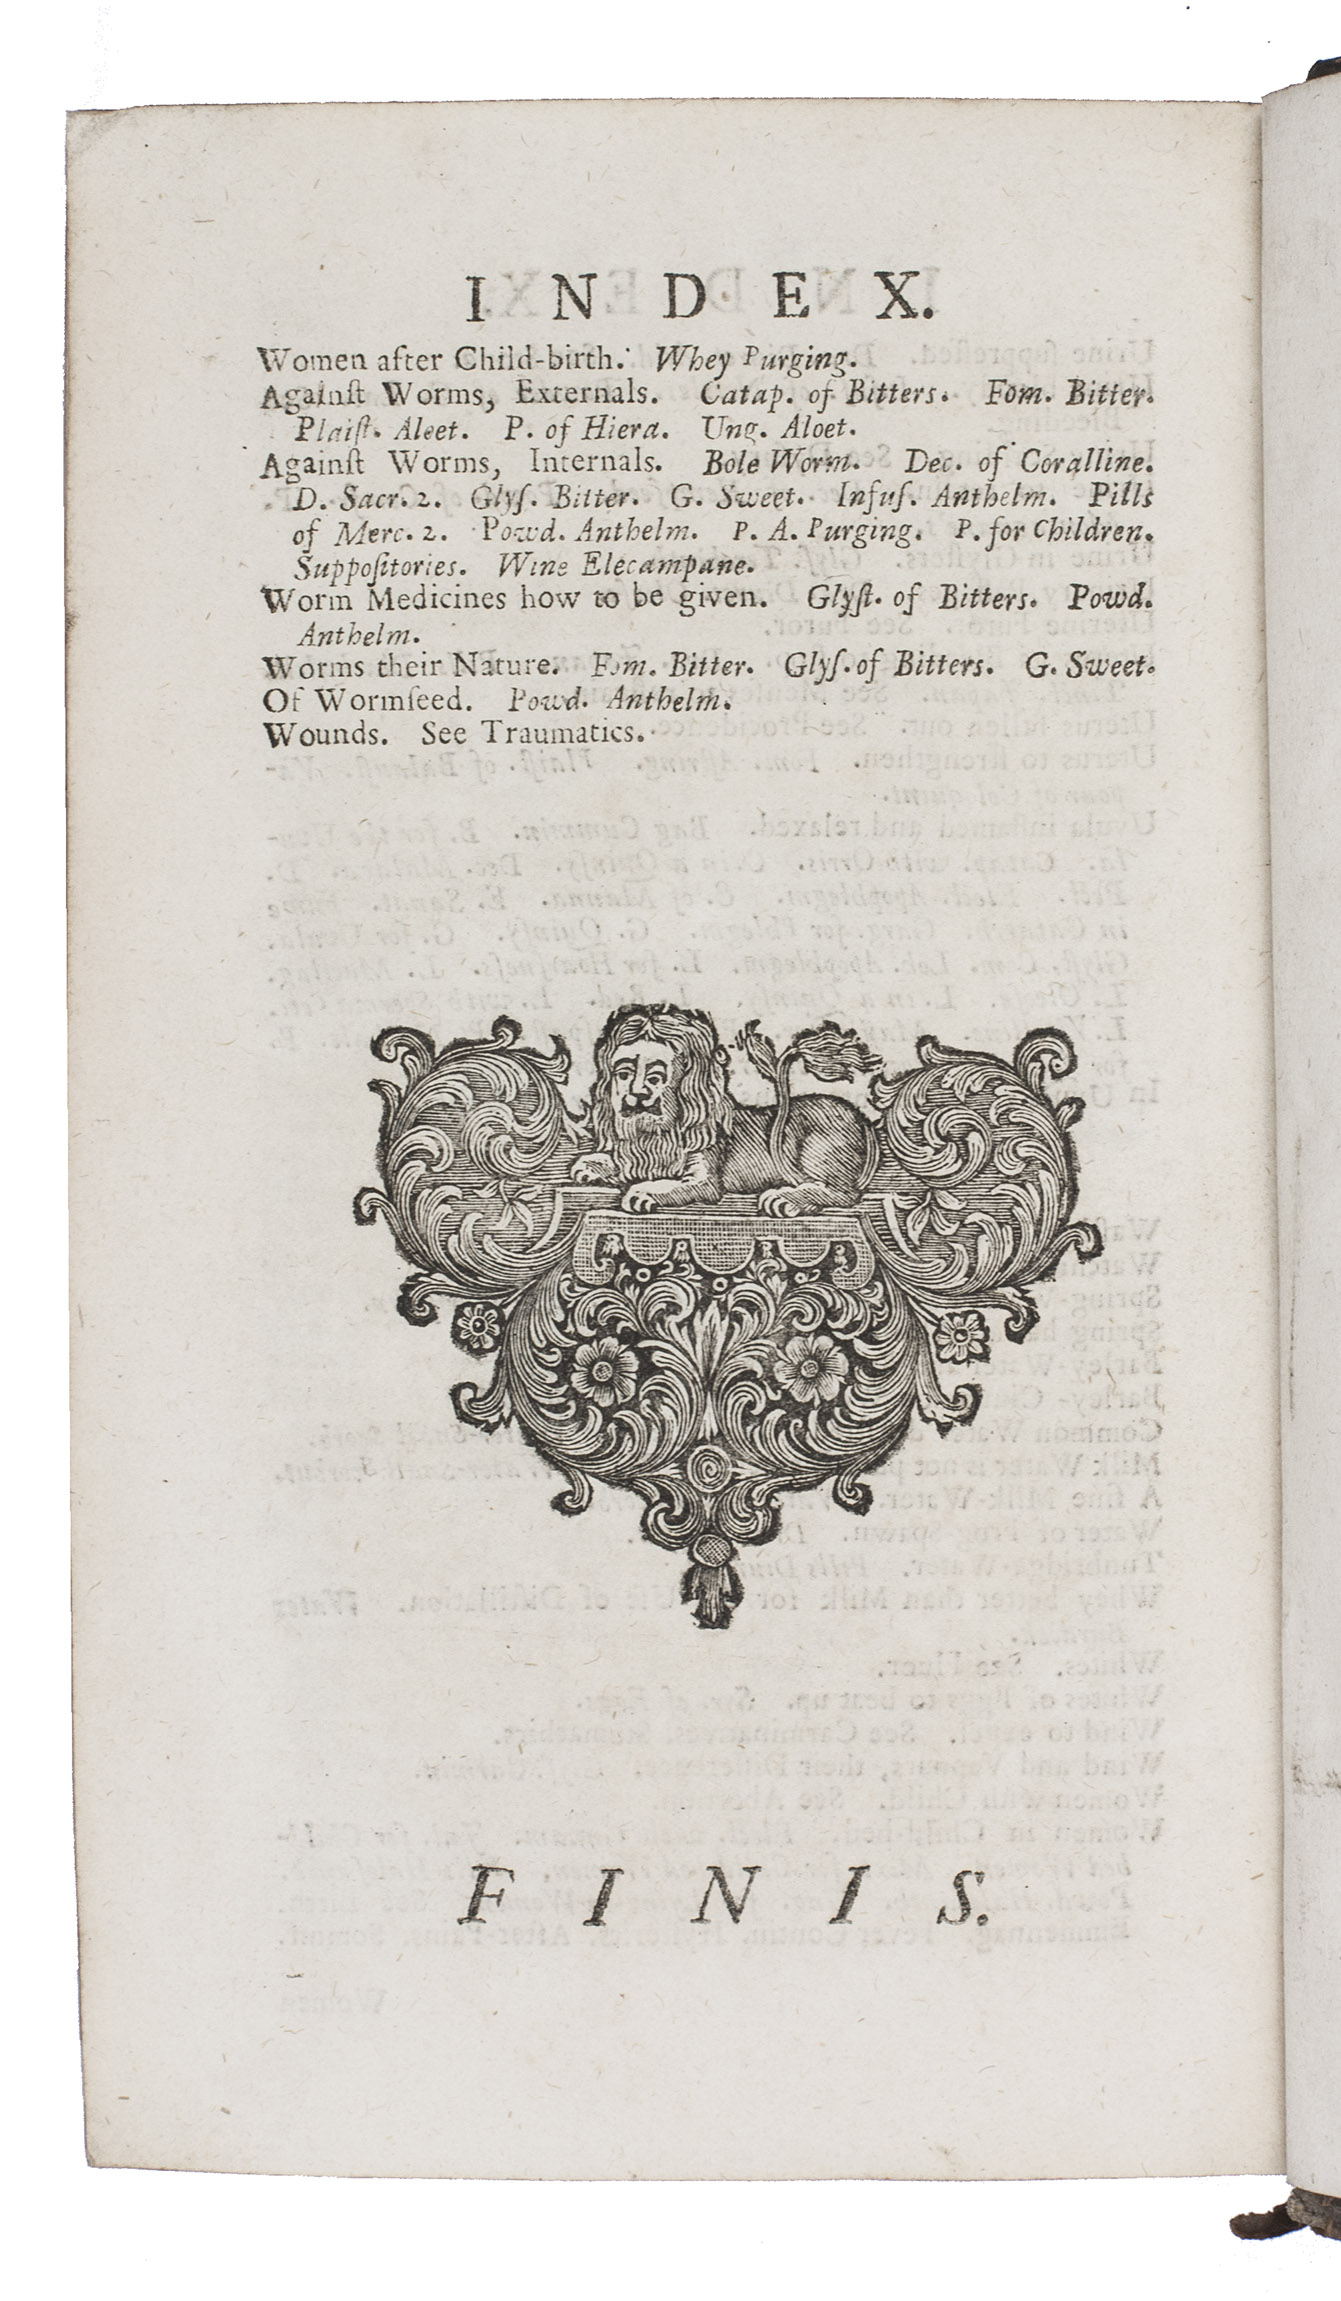 I N D E X.
Women after Child-birth. Whey Purging.
Againſt Worms, Externals. Catap. of Bitters. Fom. Bitter.
Plaiſt. Aloet. P. of Hiera. Ung. Aloet.
Againſt Worms, Internals. Bole Worm. Dec. of Coralline.
D. Sacr. 2. Glyſ. Bitter. G. Sweet. Infuſ. Anthelm. Pills
of Merc. 2. Powd. Anthelm. P. A. Purging. P. for Children.
Suppoſitories. Wine Elecampane.
Worm Medicines how to be given. Glyſt. of Bitters. Powd.
Anthelm.
Worms their Nature. Fom. Bitter. Glyſ. of Bitters. G. Sweet.
Of Wormſeed. Powd. Anthelm.
Wounds. See Traumatics.
F I N I S.